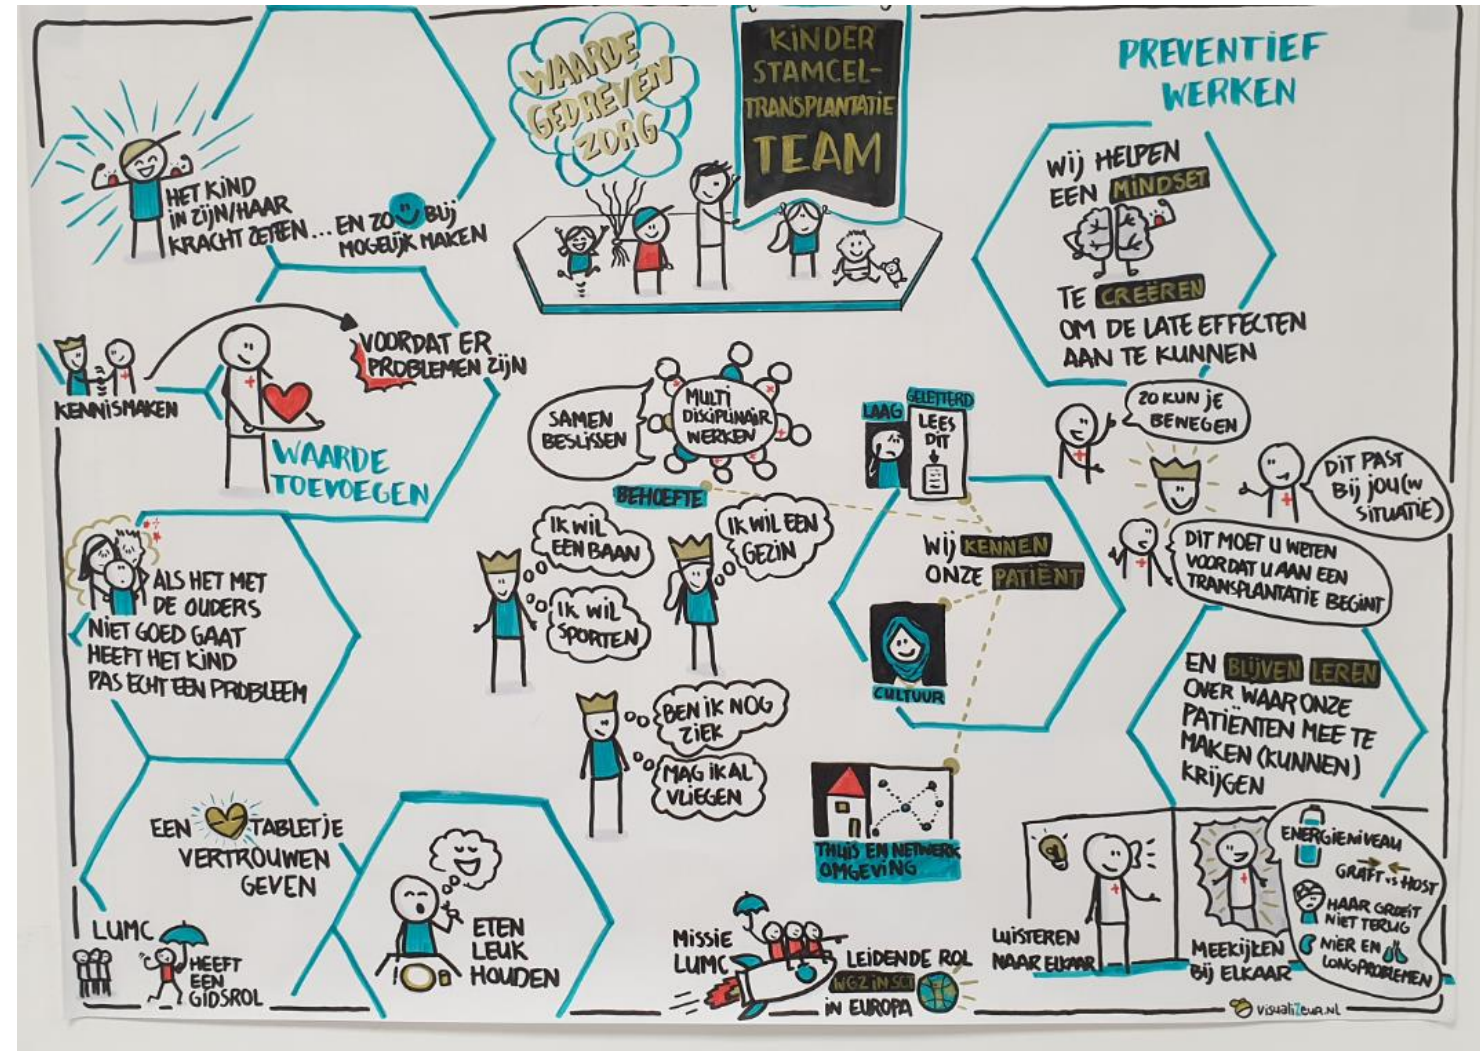 WAARDE
GEDREVEN
ZORG
KINDER
STAMCEL-
TRANSPLANTATIE
TEAM
PREVENTIEF
WERKEN
HET KIND
IN ZIJN/HAAR
KRACHT ZETTEN... EN ZO BLIJ
MOGELIJK MAKEN
KENNISMAKEN
VOORDAT ER
PROBLEMEN ZIJN
WAARDE
TOEVOEGEN
ALS HET MET
DE OUDERS
NIET GOED GAAT
HEEFT HET KIND
PAS ECHT EEN PROBLEEM
EEN TABLETJE
VERTROUWEN
GEVEN
LUMC
HEEFT
EEN
GIDSROL
ETEN
LEUK
HOUDEN
SAMEN
BESLISSEN
MULTI
DISCIPLINAIR
WERKEN
BEHOEFTE
IK WIL
EEN BAAN
IK WIL
SPORTEN
IK WIL EEN
GEZIN
BEN IK NOG
ZIEK
MAG IK AL
VLIEGEN
LAAG GELETTERD
LEES
DIT
WIJ KENNEN
ONZE PATIËNT
CULTUUR
THUIS EN NETWERK
OMGEVING
MISSIE
LUMC
LEIDENDE ROL
WGZ IN SCT
IN EUROPA
WIJ HELPEN
EEN MINDSET
TE CREËREN
OM DE LATE EFFECTEN
AAN TE KUNNEN
ZO KUN JE
BEWEGEN
DIT PAST
BIJ JOU(W
SITUATIE)
DIT MOET U WETEN
VOORDAT U AAN EEN
TRANSPLANTATIE BEGINT
EN BLIJVEN LEREN
OVER WAAR ONZE
PATIËNTEN MEE TE
MAKEN (KUNNEN)
KRIJGEN
LUISTEREN
NAAR ELKAAR
MEEKIJKEN
BIJ ELKAAR
ENERGIENIVEAU
GRAFT vs HOST
HAAR GROEIT
NIET TERUG
NIER EN
LONGPROBLEMEN
VISUALIZEUR.NL